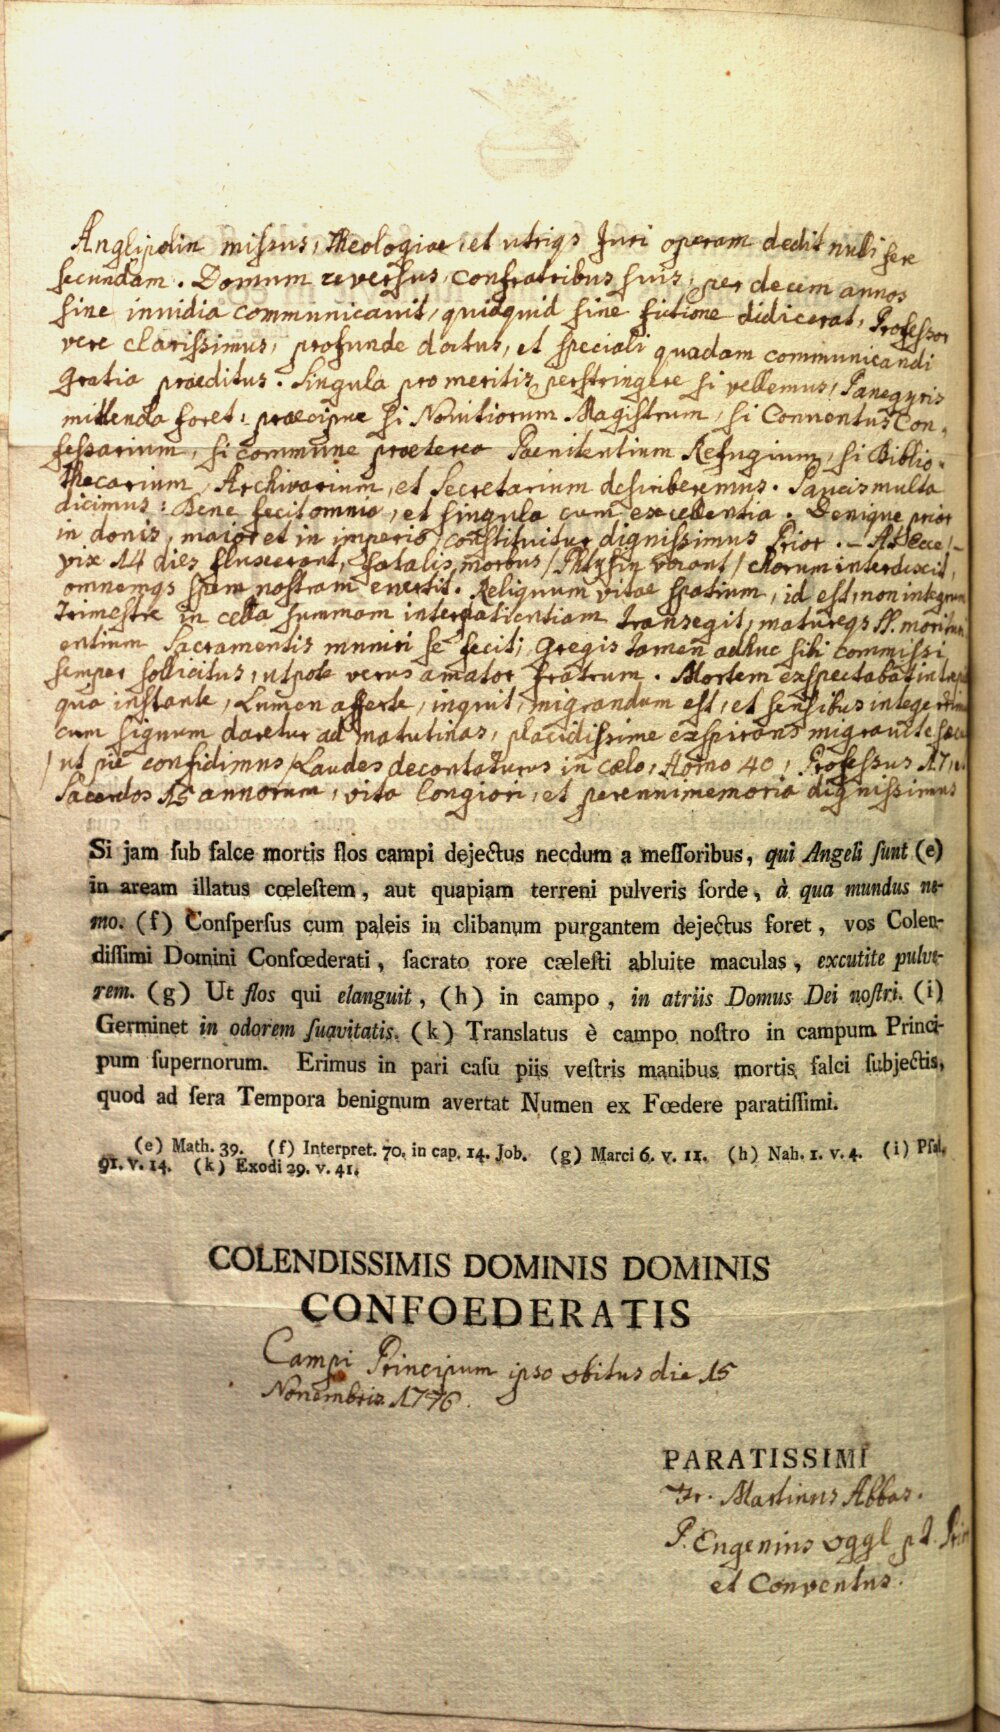 Anglipolin missus, Theologiae, et utriqs Juri operam dedit nulli fere
secundam. Domum reversus, confratribus suis, per decem annos
sine invidia communicavit, quidquid sine fictione didicerat, Professor
vere clarissimus, profunde doctus, et speciali quadam communicandi
gratia praeditus. Singula pro meritis perstringere si vellemus, Panegyris
mittenda foret: praecipue si Novitiorum Magistrum, si Conventus Con-
fessarium, si commune praeterea Paenitentium Refugium, si Biblio-
thecarium, Archivarium, et Secretarium describeremus. Paucis multa
dicimus: Bene fecit omnia, et singula cum excellentia. Denique prior
in donis, maior et in imperio constituitur dignissimus Prior. – Ast Ecce! –
vix 14 dies fluxerant, fatalis morbus / Phtysin vocant / chorum interdixit,
omnemqs spem nostram evertit. Reliquum vitae spatium, id est, non integrum
Trimestre in cella summam inter patientiam transegit, matureqs SS. moritu
entium Sacramentis muniri se fecit, gregis tamen adhuc sibi commissi
semper sollicitus, utpote verus amator fratrum. Mortem exspectabat intrepid
qua instante, Lumen afferte, inquit, migrandum est, et sensibus integerrimus
cum signum daretur ad matutinas, placidissime exspirans migravit e saecu
/ ut pie confidimus / Laudes decantaturus in caelo, Anno 40, Professus 17,
Sacerdos 15 annorum, vita longiori, et perenni memoria dignissimus
Si jam ſub falce mortis flos campi dejectus necdum a meſſoribus, qui Angeli ſunt (e)
in aream illatus cœleſtem, aut quapiam terreni pulveris ſorde, à qua mundus ne-
mo. (f) Conſperſus cum paleis in clibanum purgantem dejectus foret, vos Colen-
diſſimi Domini Confœderati, ſacrato rore cæleſti abluite maculas, excutite pulve-
rem. (g) Ut flos qui elanguit, (h) in campo, in atriis Domus Dei noſtri. (i)
Germinet in odorem ſuavitatis. (k) Translatus è campo noſtro in campum Princi-
pum ſupernorum. Erimus in pari caſu piis veſtris manibus mortis falci ſubjectis,
quod ad ſera Tempora benignum avertat Numen ex Fœdere paratiſſimi.
(e) Math. 39. (f) Interpret. 70. in cap. 14. Job. (g) Marci 6. v. 11. (h) Nah. 1. v. 4. (i) Pſal.
91. v. 14. (k) Exodi 29. v. 41.
COLENDISSIMIS DOMINIS DOMINIS
CONFOEDERATIS
Campi Principum ipso obitus die 15
Novembris 1776.
PARATISSIMI
Fr. Martinus Abbas.
P. Eugenius Oggl p.t. Prior
et Conventus.